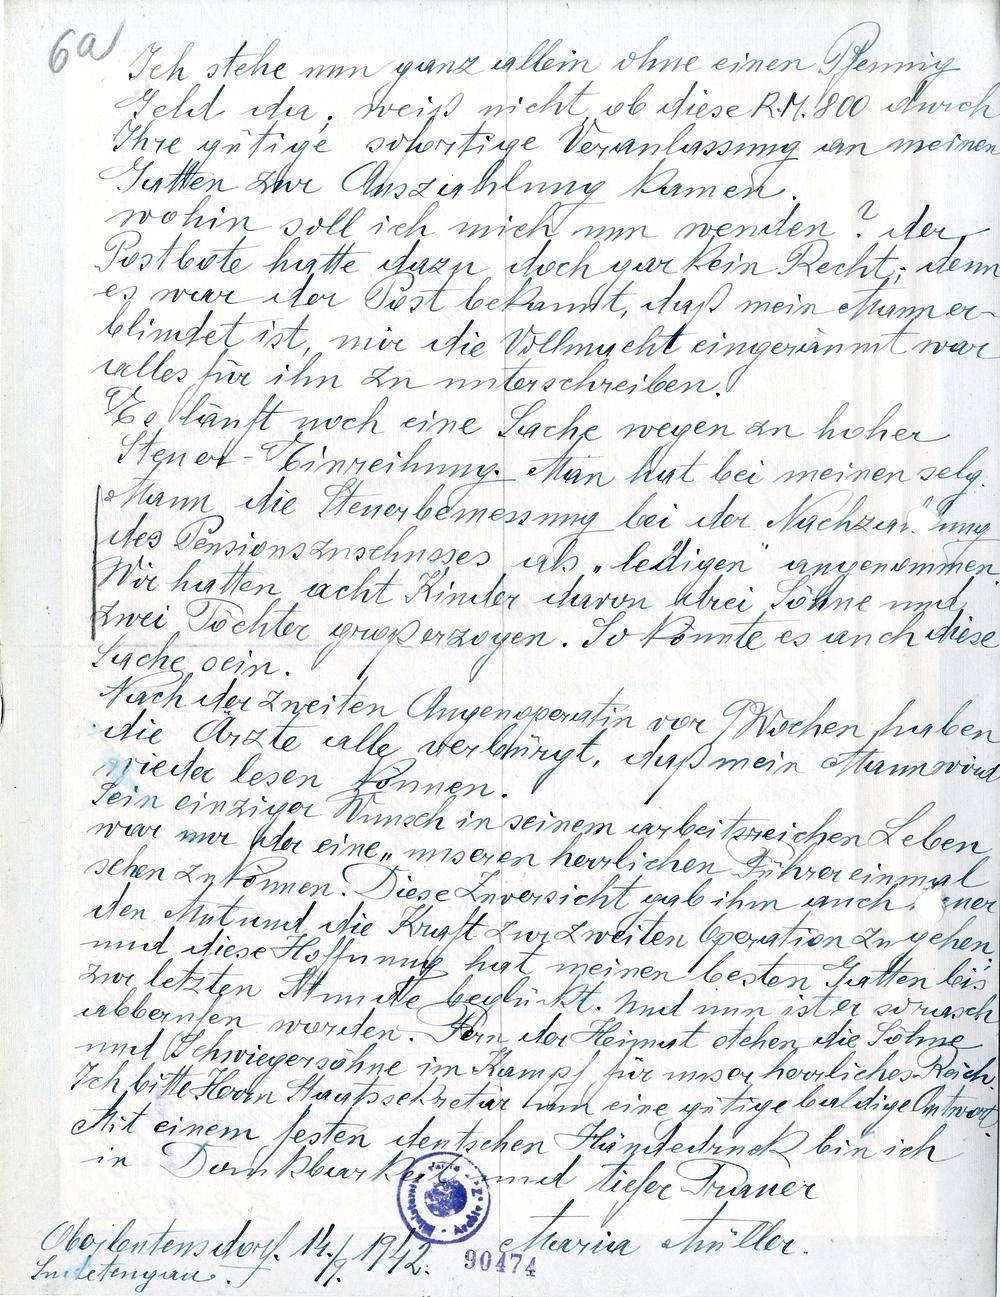 6a
Ich stehe nun ganz allein ohne einen Pfennig
Geld da, weiß nicht ob diese R.M. 800 durch
Ihre gütige sofortige Veranlassung an meinen
Gatten zur Auszahlung kamen.
wohin soll ich mich nun wenden? der
Postbote hatte dazu doch gar kein Recht, denn
es war der Post bekannt, daß mein Mann er-
blindet ist, mir die Vollmacht eingeräumt war
alles für ihn zu unterschreiben.
Es läuft noch eine Sache wegen zu hoher
Steuer-Einreihung. Man hat bei meinen selg.
Mann die Steuerbemessung bei der Nachzahlung
des Pensionszuschusses als „ledigen" angenommen
Wir hatten acht Kinder davon drei Söhne und
zwei Töchter großerzogen. So könnte es auch diese
Sache sein.
Nach der zweiten Augenoperatin vor 9 Wochen haben
die Ärzte alle verbürgt, daß mein Mann wird
wieder lesen können.
Sein einziger Wunsch in seinem arbeitsreichen Leben
war nur der eine „unseren herrlichen Führer einmal
sehen zu können. Diese Zuversicht gab ihm auch
den Mut und die Kraft zur zweiten Operation zu gehen,
und diese Hoffnung hat meinen besten Gatten bis
zur letzten Stunde beglückt. Und nun ist er so rasch
abberufen worden. Fern der Heimat stehen die Söhne
und Schwiegersöhne im Kampf für unser herrliches Reich.
Ich bitte Herrn Staatssekretär um eine gütige baldige Antwort.
Mit einem festen deutschen Händedruck bin ich
in Dankbarkeit und tiefer Trauer
Maria Müller.
Oberleutensdorf. 14./9. 1942.
Sudetengau.
90474